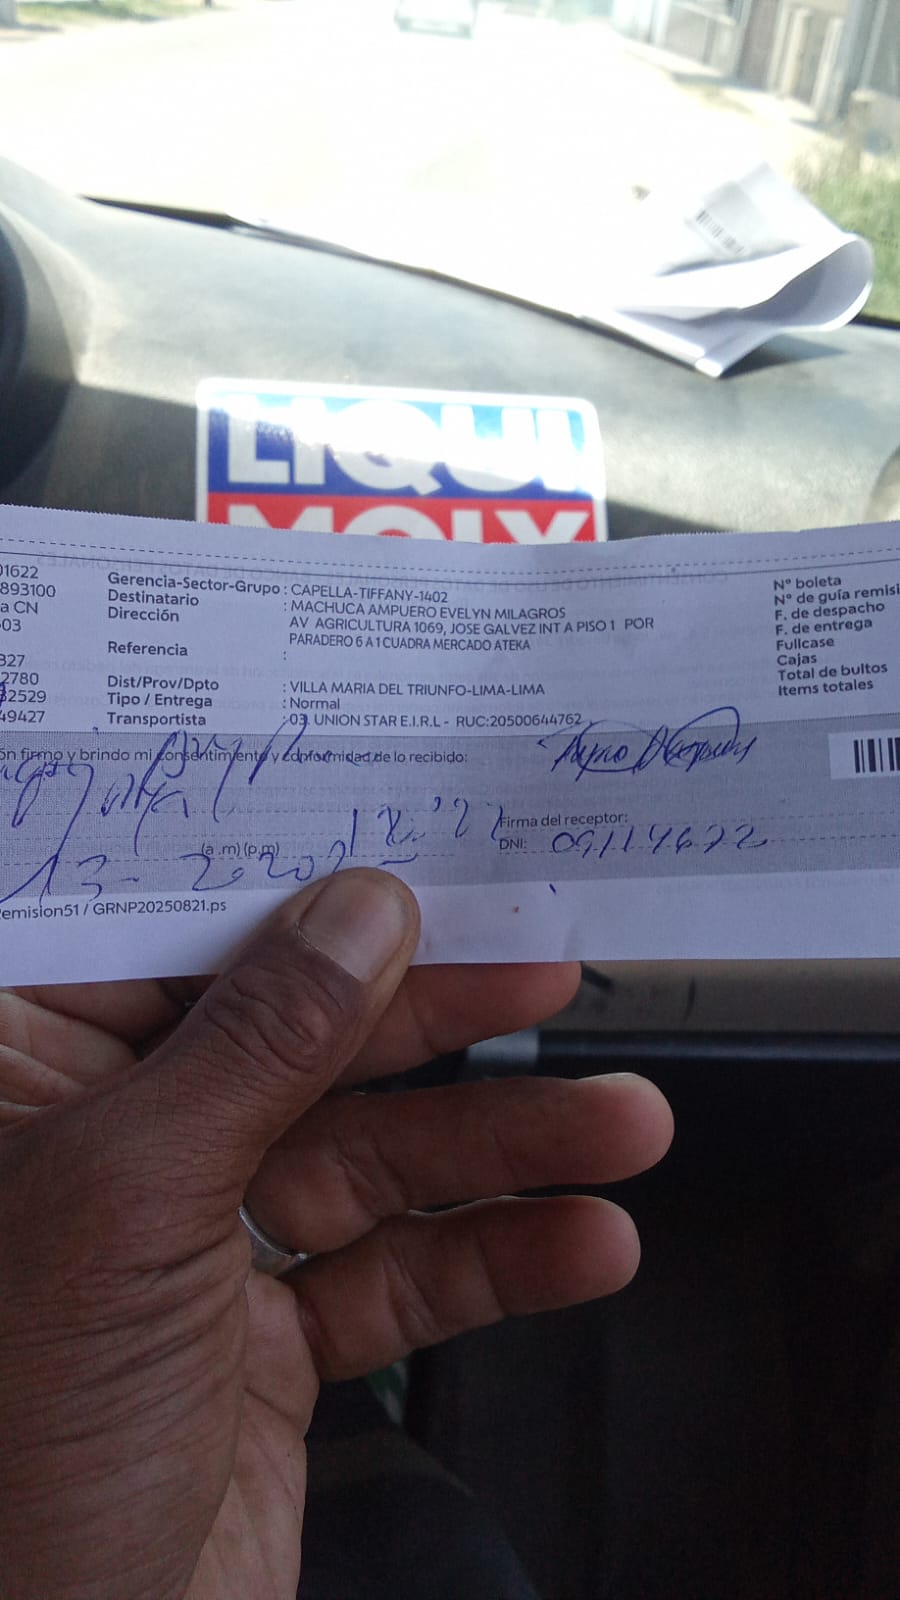 LIQUI
MOLY
01622
893100
a CN
03
327
2780
32529
49427
Gerencia-Sector-Grupo : CAPELLA-TIFFANY-1402
Destinatario : MACHUCA AMPUERO EVELYN MILAGROS
Dirección AV AGRICULTURA 1069, JOSE GALVEZ INT A PISO 1 POR
PARADERO 6 A 1 CUADRA MERCADO ATEKA
Referencia :
Dist/Prov/Dpto : VILLA MARIA DEL TRIUNFO-LIMA-LIMA
Tipo / Entrega : Normal
Transportista : 03. UNION STAR E.I.R.L - RUC:20500644762
N° boleta
N° de guía remisi
F. de despacho
F. de entrega
Fullcase
Cajas
Total de bultos
Items totales
ón firmo y brindo mi consentimiento y conformidad de lo recibido:
Firma del receptor:
(a .m) (p.m)
DNI:
emision51 / GRNP20250821.ps